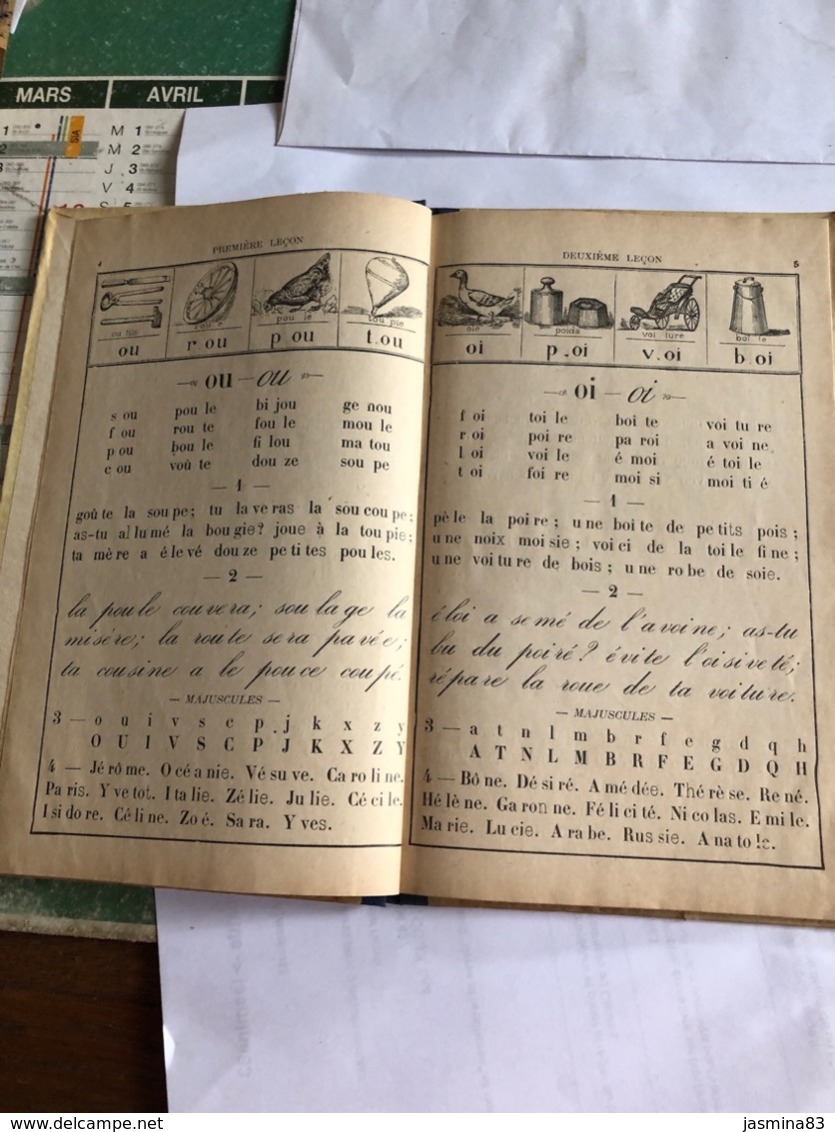 MARS AVRIL
M 1
M 2
J 3
V 4
4
PREMIÈRE LEÇON
ou til
rou e
pou le
tou pie
ou r.ou p.ou t.ou
ou — ou
s ou pou le bi jou ge nou
f ou rou te fou le mou le
p ou bou le fi lou ma tou
c ou voû te dou ze sou pe
— 1 —
goû te la sou pe; tu la ve ras la sou cou pe;
as-tu al lu mé la bou gie? joue à la tou pie;
ta mè re a é le vé dou ze pe ti tes pou les.
— 2 —
la pou le cou ve ra; sou la ge la
mi sè re; la rou te se ra pa vée;
ta cou si ne a le pou ce cou pé.
— MAJUSCULES —
3 — o u i v s c p j k x z y
O U I V S C P J K X Z Y
4 — Jé rô me. O cé a nie. Vé su ve. Ca ro li ne.
Pa ris. Y ve tot. I ta lie. Zé lie. Ju lie. Cé ci le.
I si do re. Cé li ne. Zo é. Sa ra. Y ves.
DEUXIÈME LEÇON
5
oie
poids
voi ture
boî te
oi p.oi v.oi b.oi
oi — oi
f oi toi le boi te voi tu re
r oi poi re pa roi a voi ne
l oi voi le é moi é toi le
t oi foi re moi si moi ti é
— 1 —
pè le la poi re; u ne boi te de pe tits pois;
u ne noix moi sie; voi ci de la toi le fi ne;
u ne voi tu re de bois; u ne ro be de soie.
— 2 —
é loi a se mé de l'a voi ne; as-tu
bu du poi ré? é vi te l'oi si ve té;
ré pa re la roue de ta voi tu re.
— MAJUSCULES —
3 — a t n l m b r f e g d q h
A T N L M B R F E G D Q H
4 — Bô ne. Dé si ré. A mé dée. Thé rè se. Re né.
Hé lè ne. Ga ron ne. Fé li ci té. Ni co las. E mi le.
Ma rie. Lu cie. A ra be. Rus sie. A na to le.
jasmina83